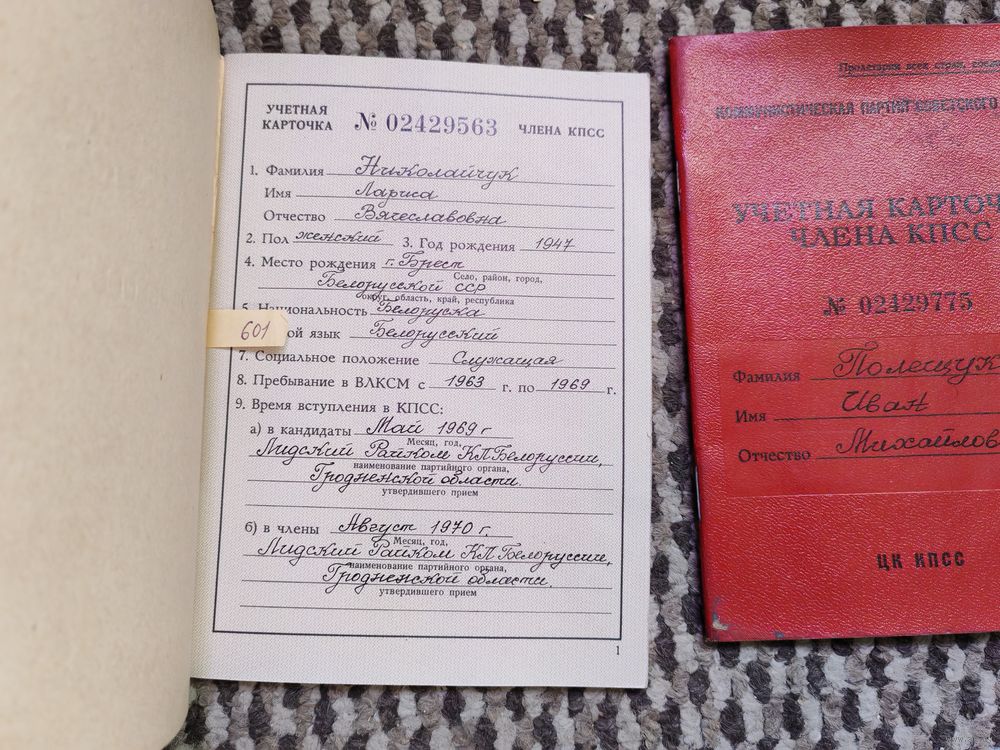 УЧЕТНАЯ
КАРТОЧКА № 02429563 ЧЛЕНА КПСС
1. Фамилия Николайчук
Имя Лариса
Отчество Вячеславовна
2. Пол женский 3. Год рождения 1947
4. Место рождения г. Брест
Село, район, город,
Белорусской ССР
округ, область, край, республика
5. Национальность Белоруска
601 ой язык Белорусский
7. Социальное положение Служащая
8. Пребывание в ВЛКСМ с 1963 г. по 1969 г.
9. Время вступления в КПСС:
а) в кандидаты Май 1969 г
Месяц, год,
Лидский Райком КП Белоруссии,
наименование партийного органа,
Гродненской области.
утвердившего прием
б) в члены Август 1970 г.
Месяц, год,
Лидский Райком КП Белоруссии,
наименование партийного органа,
Гродненской области.
утвердившего прием
1
Пролетарии всех стран, соеди
КОММУНИСТИЧЕСКАЯ ПАРТИЯ СОВЕТСКОГО
УЧЕТНАЯ КАРТОЧ
ЧЛЕНА КПСС
№ 02429775
Фамилия Полещук
Имя Иван
Отчество Михайлов
ЦК КПСС